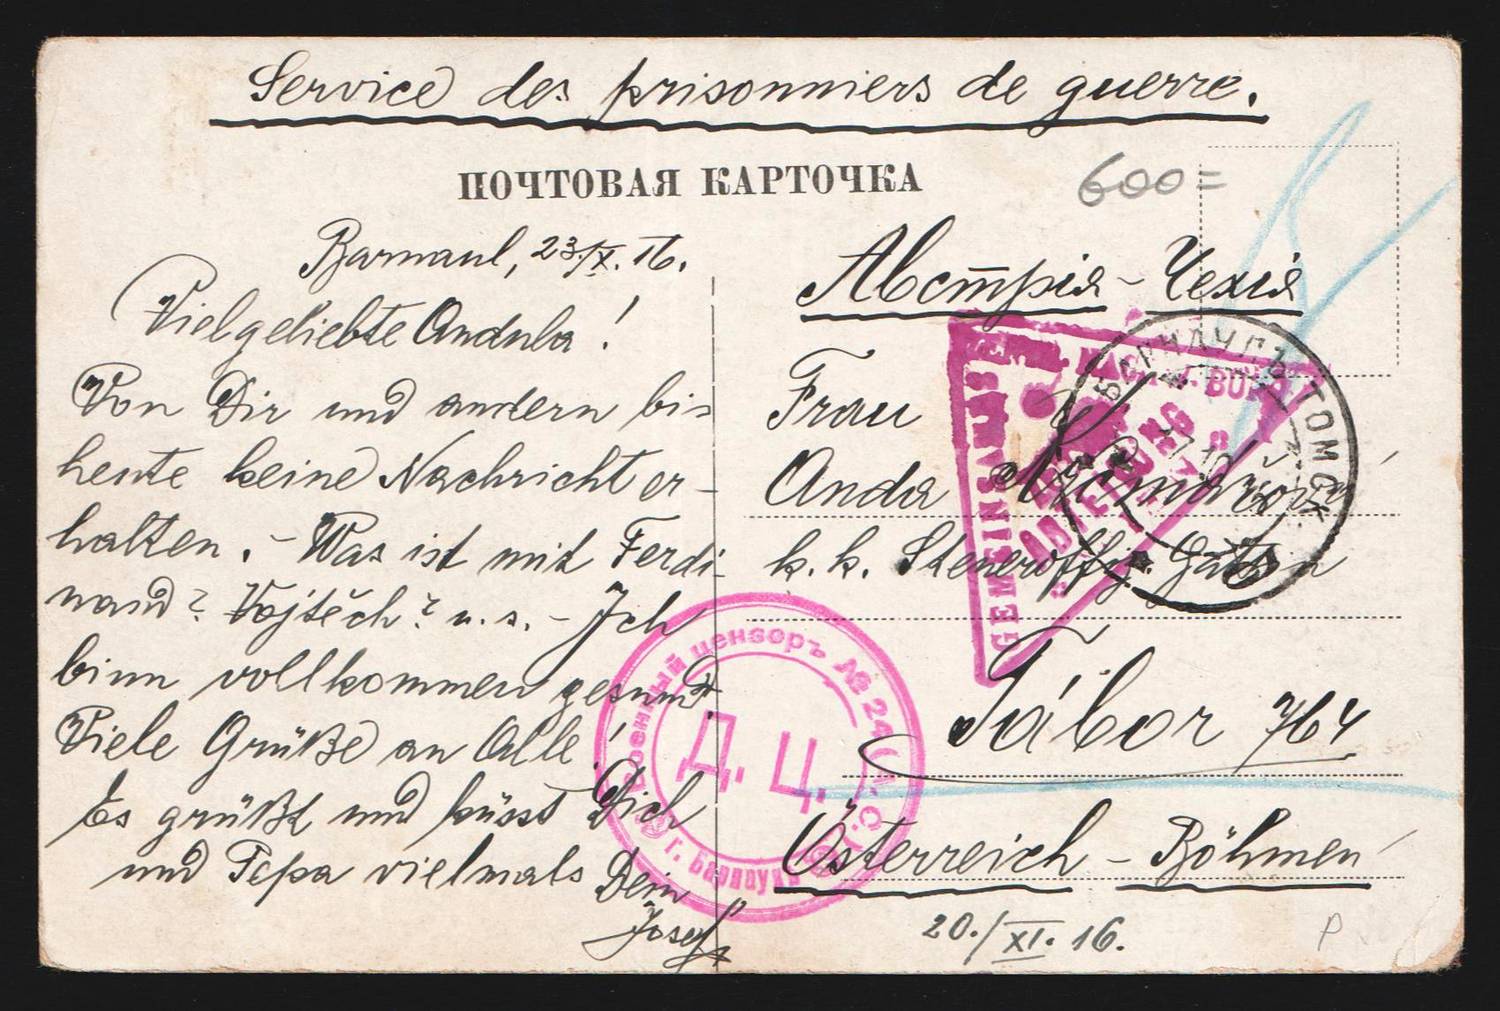 Service des prisonniers de guerre.
ПОЧТОВАЯ КАРТОЧКА
600=
Barnaul, 23./X. 16.
Vielgeliebte Andula!
Von Dir und andern bis
heute keine Nachricht er-
halten. – Was ist mit Ferdi-
nand? Vojtěch? u. s. – Ich
binn vollkommen gesund.
Viele Grüße an Alle!
Es grüßt und küsst Dich
und Pepa vielmals Dein
Josef
Австрія – Чехія
Frau
Anda
k. k. Steueroffiz. Gattin
Tábor 764
Österreich – Böhmen
20./XI. 16.
GEMEINSAMES
NACHW. BUR
ABTEILUNG
БАРНАУЛЪ ТОМСК.
Военный цензоръ № 24
Д. Ц.
г. Барнаулъ
P